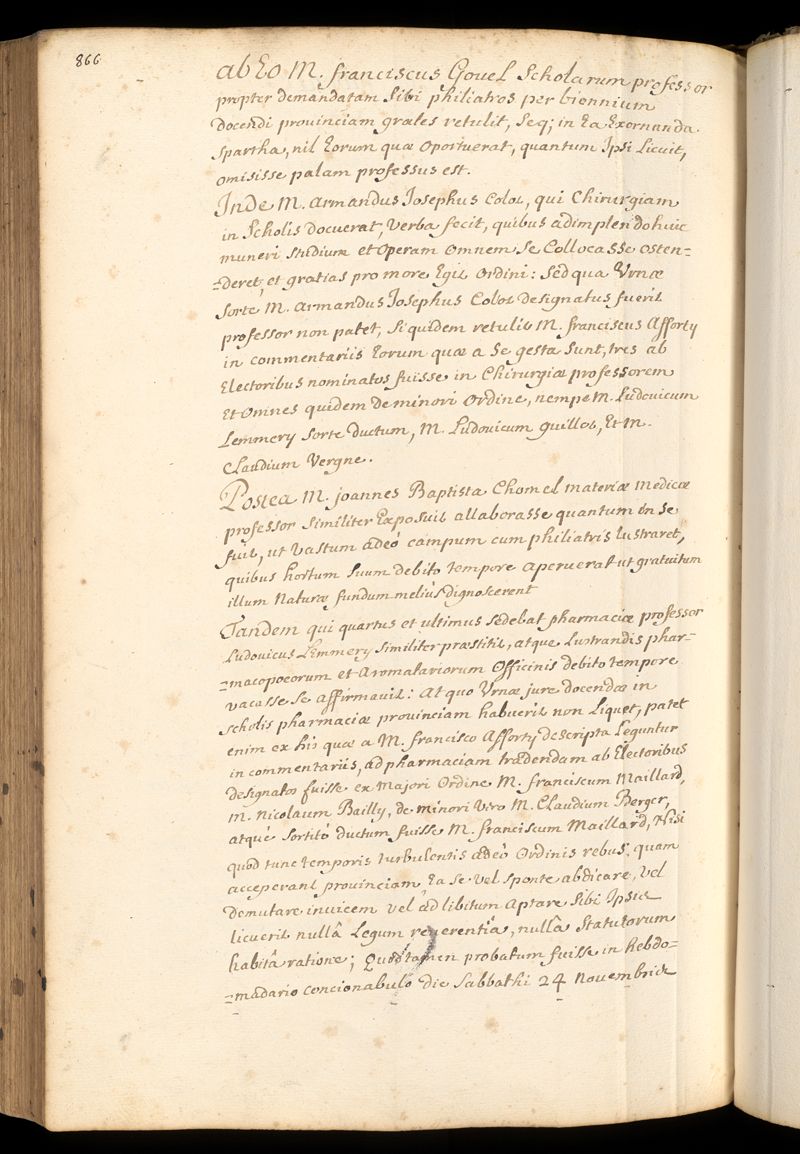 866
ab Eo M. franciscus Gouel Scholarum professor
propter demandatam Sibi philiatros per biennium
docendi prouinciam grates retulit, Seq; in Ea Exornanda
Spartha, nil Eorum quæ Oportuerat, quantum Ipsi Licuit,
omisisse palam professus est.
Inde M. Armandus Josephus Colot, qui Chirurgiam
in Scholis docuerat, Verba fecit, quibus adimplendo huic
muneri Studium et Operam Omnem Se Collocasse Osten=
=deret, et gratias pro more Egit Ordini: Sed qua Vrnæ
Sorte M. Armandus Josephus Colot designatus fuerit
professor non patet, Siquidem retulit M. franciscus Afforty
in commentariis Eorum quæ a Se gesta Sunt, tres ab
Electoribus nominatos fuisse in Chirurgiæ professorem
Et Omnes quidem de minori Ordine, nempe M. Ludouicum
Lemmery Sorte ductum, M. Ludouicum guillot, Et M.
Claudium Vergne.
Postea M. joannes Baptista Chomel materiæ medicæ
professor Similiter Exposuit allaborasse quantum in Se
fuit, ut Vastum adeò campum cum philiatris Lustraret,
quibus hortum Suum debito tempore aperuerat ut gratuitum
illum Naturæ fundum melius dignoscerent
Tandem qui quartus et ultimus Sedebat pharmaciæ professor
Ludouicus Lemmery Similiter præstitit, atque Lustrandis phar=
=macopoeorum et Aromatariorum Officinis debito tempore
vacasse Se affirmauit: At quo Vrnæ jure docendæ in
Scholis pharmaciæ prouinciam habuerit non Liquet, patet
enim ex his quæ a M. francisco Afforty descripta Leguntur
in commentariis, ad pharmaciam trædendam ab Electoribus
designatos fuisse ex Majori Ordine M. franciscum Maillard,
M. Nicolaum Bailly, de minori Vero M. Claudium Berger,
atque Sortitò ductum fuisse M. franciscum Maillard, Nisi
quod tunc temporis turbulentis adeò Ordinis rebus, quam
acceperant prouinciam, Ea Se Vel Sponte abdicare, Vel
demutare inuicem Vel ad libitum Aptare Sibi Ipsis
licuerit nullâ Legum reuerentiâ, nullâ Statutorum
habitâ ratione; Quod tamen probatum fuisse in hebdo=
=madario concionabulo die Sabbathi 24 Nouembris